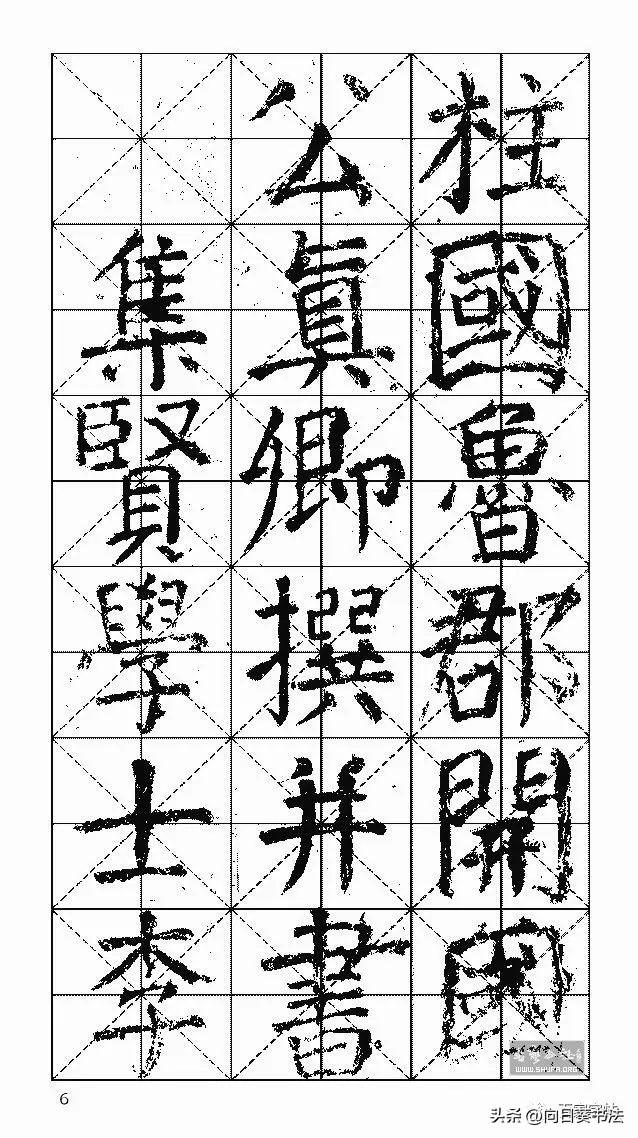 柱國魯郡開國
公真卿撰并書
集賢學士李
WWW.SHUFA.ORG
6
头条 @向日葵书法